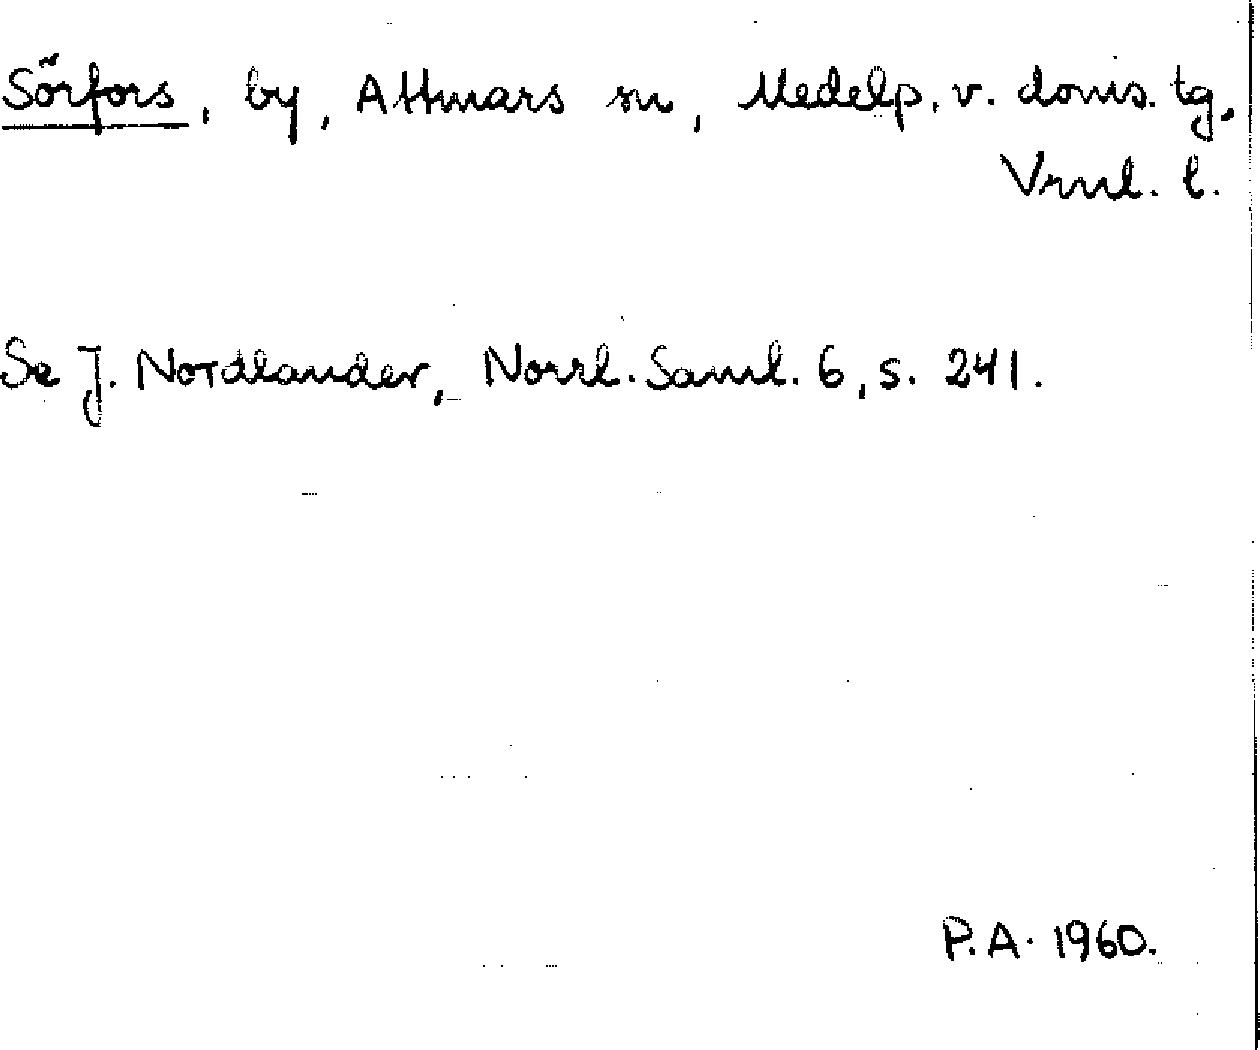 Sörfors, by, Attmars sn, Medelp. v. doms. tg.
Vrnl. l.
Se J. Nordlander, Norrl. Saml. 6, s. 241.
P.A. 1960.